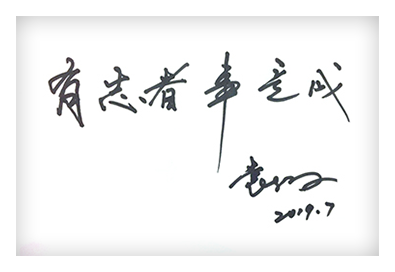 有志者事竟成
2019.7